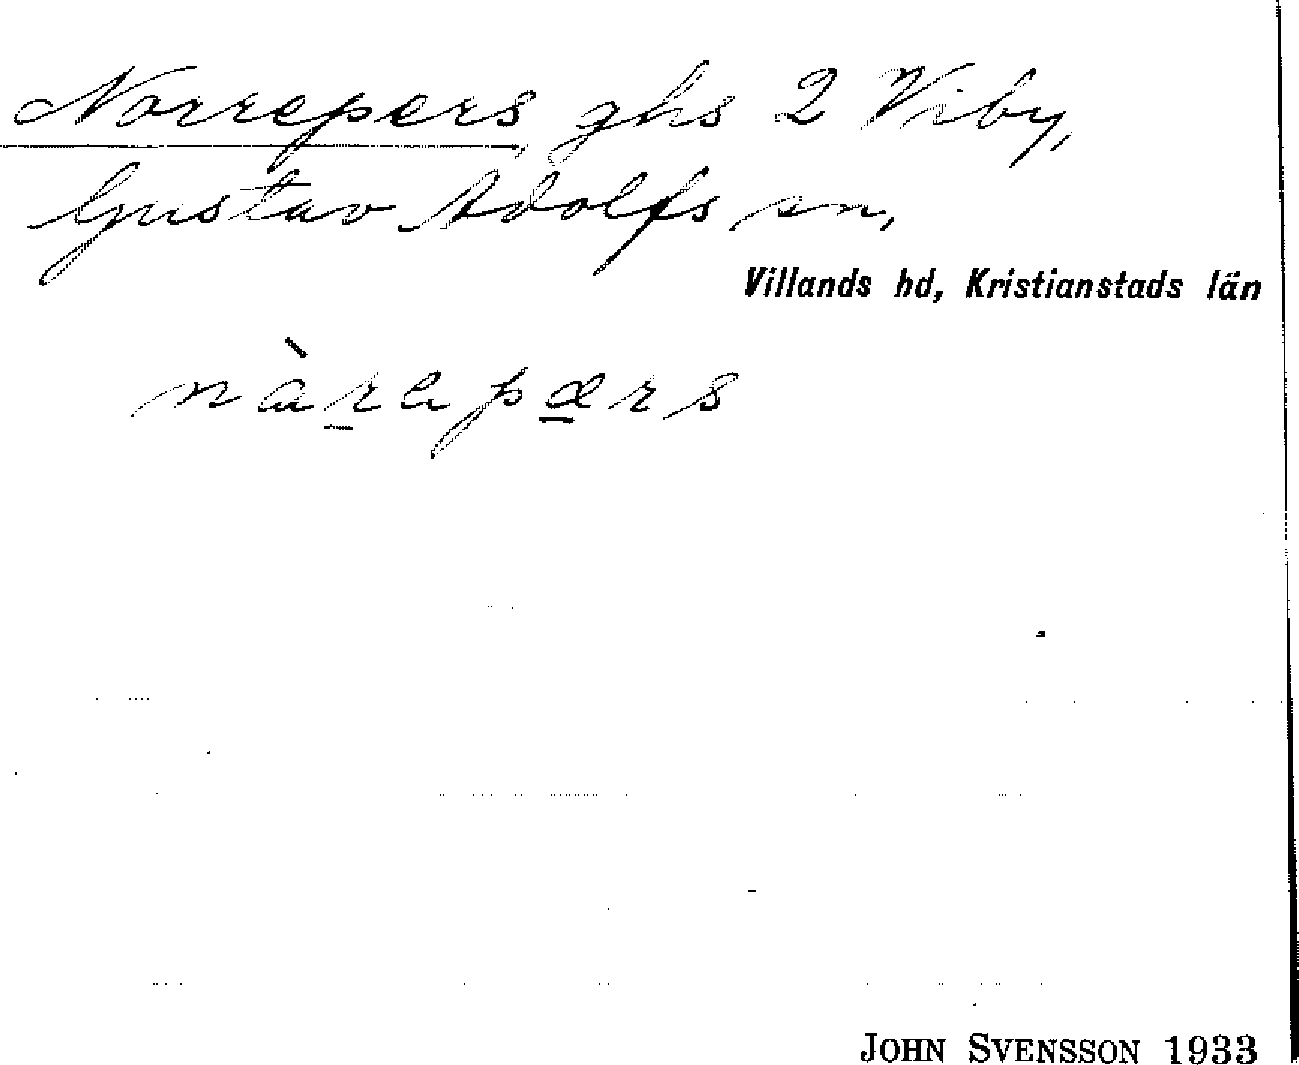 Norrepers ghs 2 Viby,
Gustav Adolfs sn,
Villands hd, Kristianstads län
nàrapærs
JOHN SVENSSON 1933